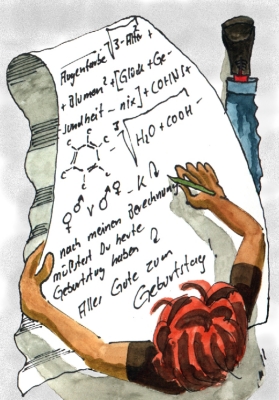 Augenfarbe √3-Alter +
+ Blumen² + [Glück + Ge-
sundheit - nix] + COHNS +
³√H₂O + COOH -
C C C C C C
♀♂ v ♂♀ - K
nach meinen Berechnungen
müßtest Du heute
Geburtstag haben
Alles Gute zum
Geburtstag!